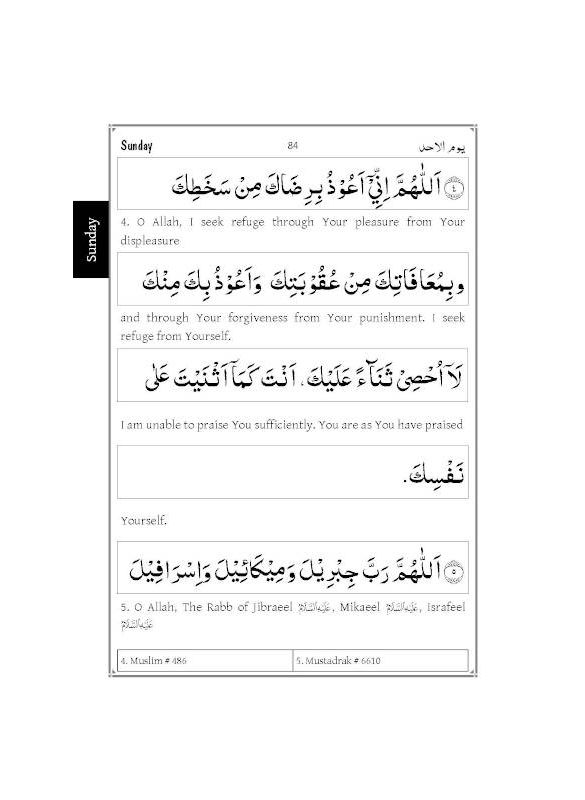 Sunday 84 يوم الاحد
Sunday
٤ اَللّٰهُمَّ اِنِّيْٓ اَعُوْذُ بِرِضَاكَ مِنْ سَخَطِكَ
4. O Allah, I seek refuge through Your pleasure from Your
displeasure
وبِمُعَافَاتِكَ مِنْ عُقُوْبَتِكَ وَاَعُوْذُ بِكَ مِنْكَ
and through Your forgiveness from Your punishment. I seek
refuge from Yourself.
لَآ اُحْصِيْ ثَنَآءً عَلَيْكَ. اَنْتَ كَمَآ اَثْنَيْتَ عَلٰى
I am unable to praise You sufficiently. You are as You have praised
نَفْسِكَ.
Yourself.
٥ اَللّٰهُمَّ رَبَّ جِبْرِيْلَ وَمِيْكَائِيْلَ وَاِسْرَافِيْلَ
5. O Allah, The Rabb of Jibraeel عَلَيْهِ السَّلَامُ, Mikaeel عَلَيْهِ السَّلَامُ, Israfeel
عَلَيْهِ السَّلَامُ
4. Muslim # 486 5. Mustadrak # 6610